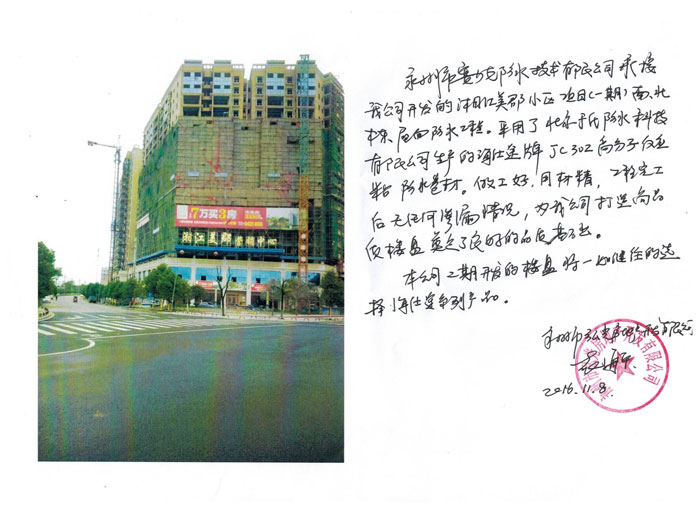 7万买3房
湘江美郡营销中心
永州市赛力克防水技术有限公司承接
我公司开发的湘江美郡小区项目(一期)南、北
栋屋面防水工程。采用了
防水科技
有限公司生产的 牌JC302高分子
粘防水卷材。做工好,用材精,工程完工
后无任何渗漏情况,为我公司打造高品
质楼盘奠定了良好的品质基础。
本公司二期开发的楼盘将一如既往的选
择 系列产品。
永州市
有限公司
2016.11.8.